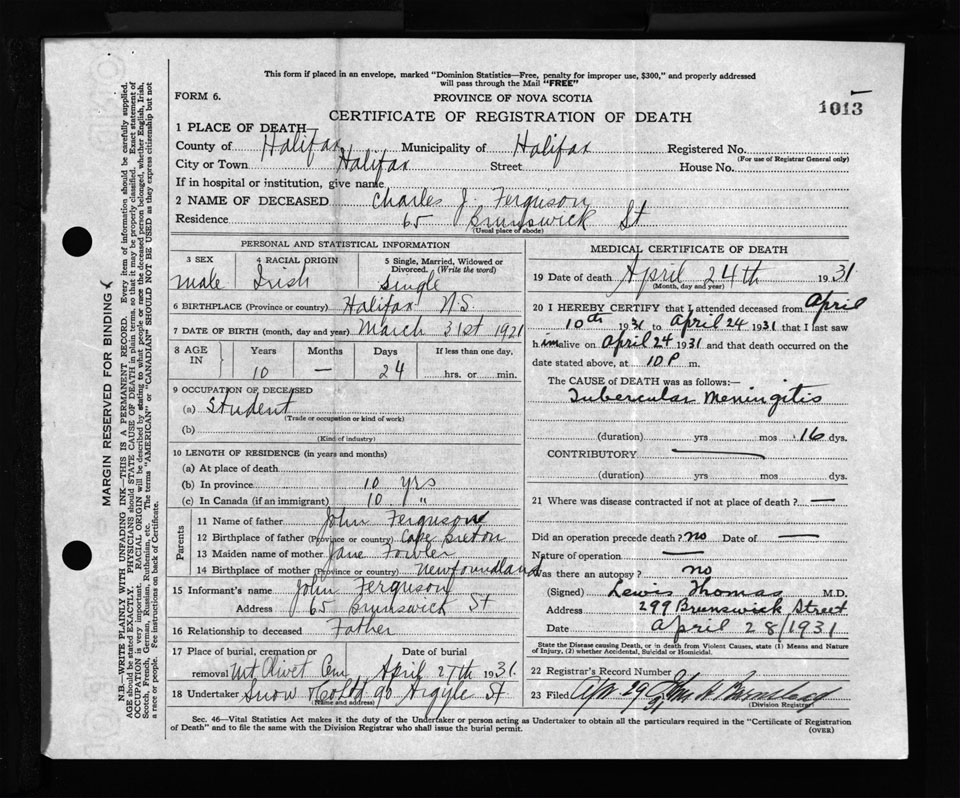 This form if placed in an envelope, marked "Dominion Statistics—Free, penalty for improper use, $300," and properly addressed
will pass through the Mail "FREE"
FORM 6.
PROVINCE OF NOVA SCOTIA
1013
CERTIFICATE OF REGISTRATION OF DEATH
1 PLACE OF DEATH—
County of Halifax Municipality of Halifax Registered No.
(For use of Registrar General only)
City or Town Halifax Street House No.
If in hospital or institution, give name
2 NAME OF DECEASED Charles J. Ferguson
Residence 65 Brunswick St
(Usual place of abode)
PERSONAL AND STATISTICAL INFORMATION
3 SEX 4 RACIAL ORIGIN 5 Single, Married, Widowed or Divorced. (Write the word)
male Irish Single
6 BIRTHPLACE (Province or country) Halifax N.S.
7 DATE OF BIRTH (month, day and year) March 31st 1921
8 AGE IN Years Months Days If less than one day,
10 — 24 hrs. or min.
9 OCCUPATION OF DECEASED
(a) Student
(Trade or occupation or kind of work)
(b)
(Kind of industry)
10 LENGTH OF RESIDENCE (in years and months)
(a) At place of death
(b) In province 10 yrs
(c) In Canada (if an immigrant) 10 "
Parents
11 Name of father John Ferguson
12 Birthplace of father (Province or country) Cape Breton
13 Maiden name of mother Jane Fowler
14 Birthplace of mother (Province or country) Newfoundland
15 Informant's name John Ferguson
Address 65 Brunswick St
16 Relationship to deceased Father
17 Place of burial, cremation or removal Date of burial
Mt Olivet Cem April 27th 1931
18 Undertaker Snow & Co Ltd 90 Argyle St
(Name and address)
MEDICAL CERTIFICATE OF DEATH
19 Date of death April 24th 1931
(Month, day and year)
20 I HEREBY CERTIFY that I attended deceased from April
10th 1931 to April 24 1931 that I last saw
him alive on April 24 1931 and that death occurred on the
date stated above, at 10 P m.
The CAUSE OF DEATH was as follows:—
Tubercular Meningitis
(duration) yrs mos 16 dys.
CONTRIBUTORY —
(duration) yrs mos dys.
21 Where was disease contracted if not at place of death? —
Did an operation precede death? no Date of —
Nature of operation —
Was there an autopsy? no
(Signed) Lewis Thomas M.D.
Address 299 Brunswick Street
Date April 28/1931
State the Disease causing Death, or in death from Violent Causes, state (1) Means and Nature
of Injury, (2) whether Accidental, Suicidal or Homicidal.
22 Registrar's Record Number
23 Filed Apr. 29
31
(Division Registrar)
Sec. 46—Vital Statistics Act makes it the duty of the Undertaker or person acting as Undertaker to obtain all the particulars required in the "Certificate of Registration
of Death" and to file the same with the Division Registrar who shall issue the burial permit.
(OVER)
MARGIN RESERVED FOR BINDING
N.B.—WRITE PLAINLY WITH UNFADING INK—THIS IS A PERMANENT RECORD. Every item of information should be carefully supplied.
AGE should be stated EXACTLY. PHYSICIANS should STATE CAUSE OF DEATH in plain terms, so that it may be properly classified. Exact statement of
OCCUPATION is very important. RACIAL ORIGIN will be described by stating to what people or race the deceased person belonged, whether English, Irish,
Scotch, French, German, Russian, Ruthenian, etc. The terms "AMERICAN" or "CANADIAN" SHOULD NOT BE USED as they express citizenship but not
a race or people. See instructions on back of Certificate.